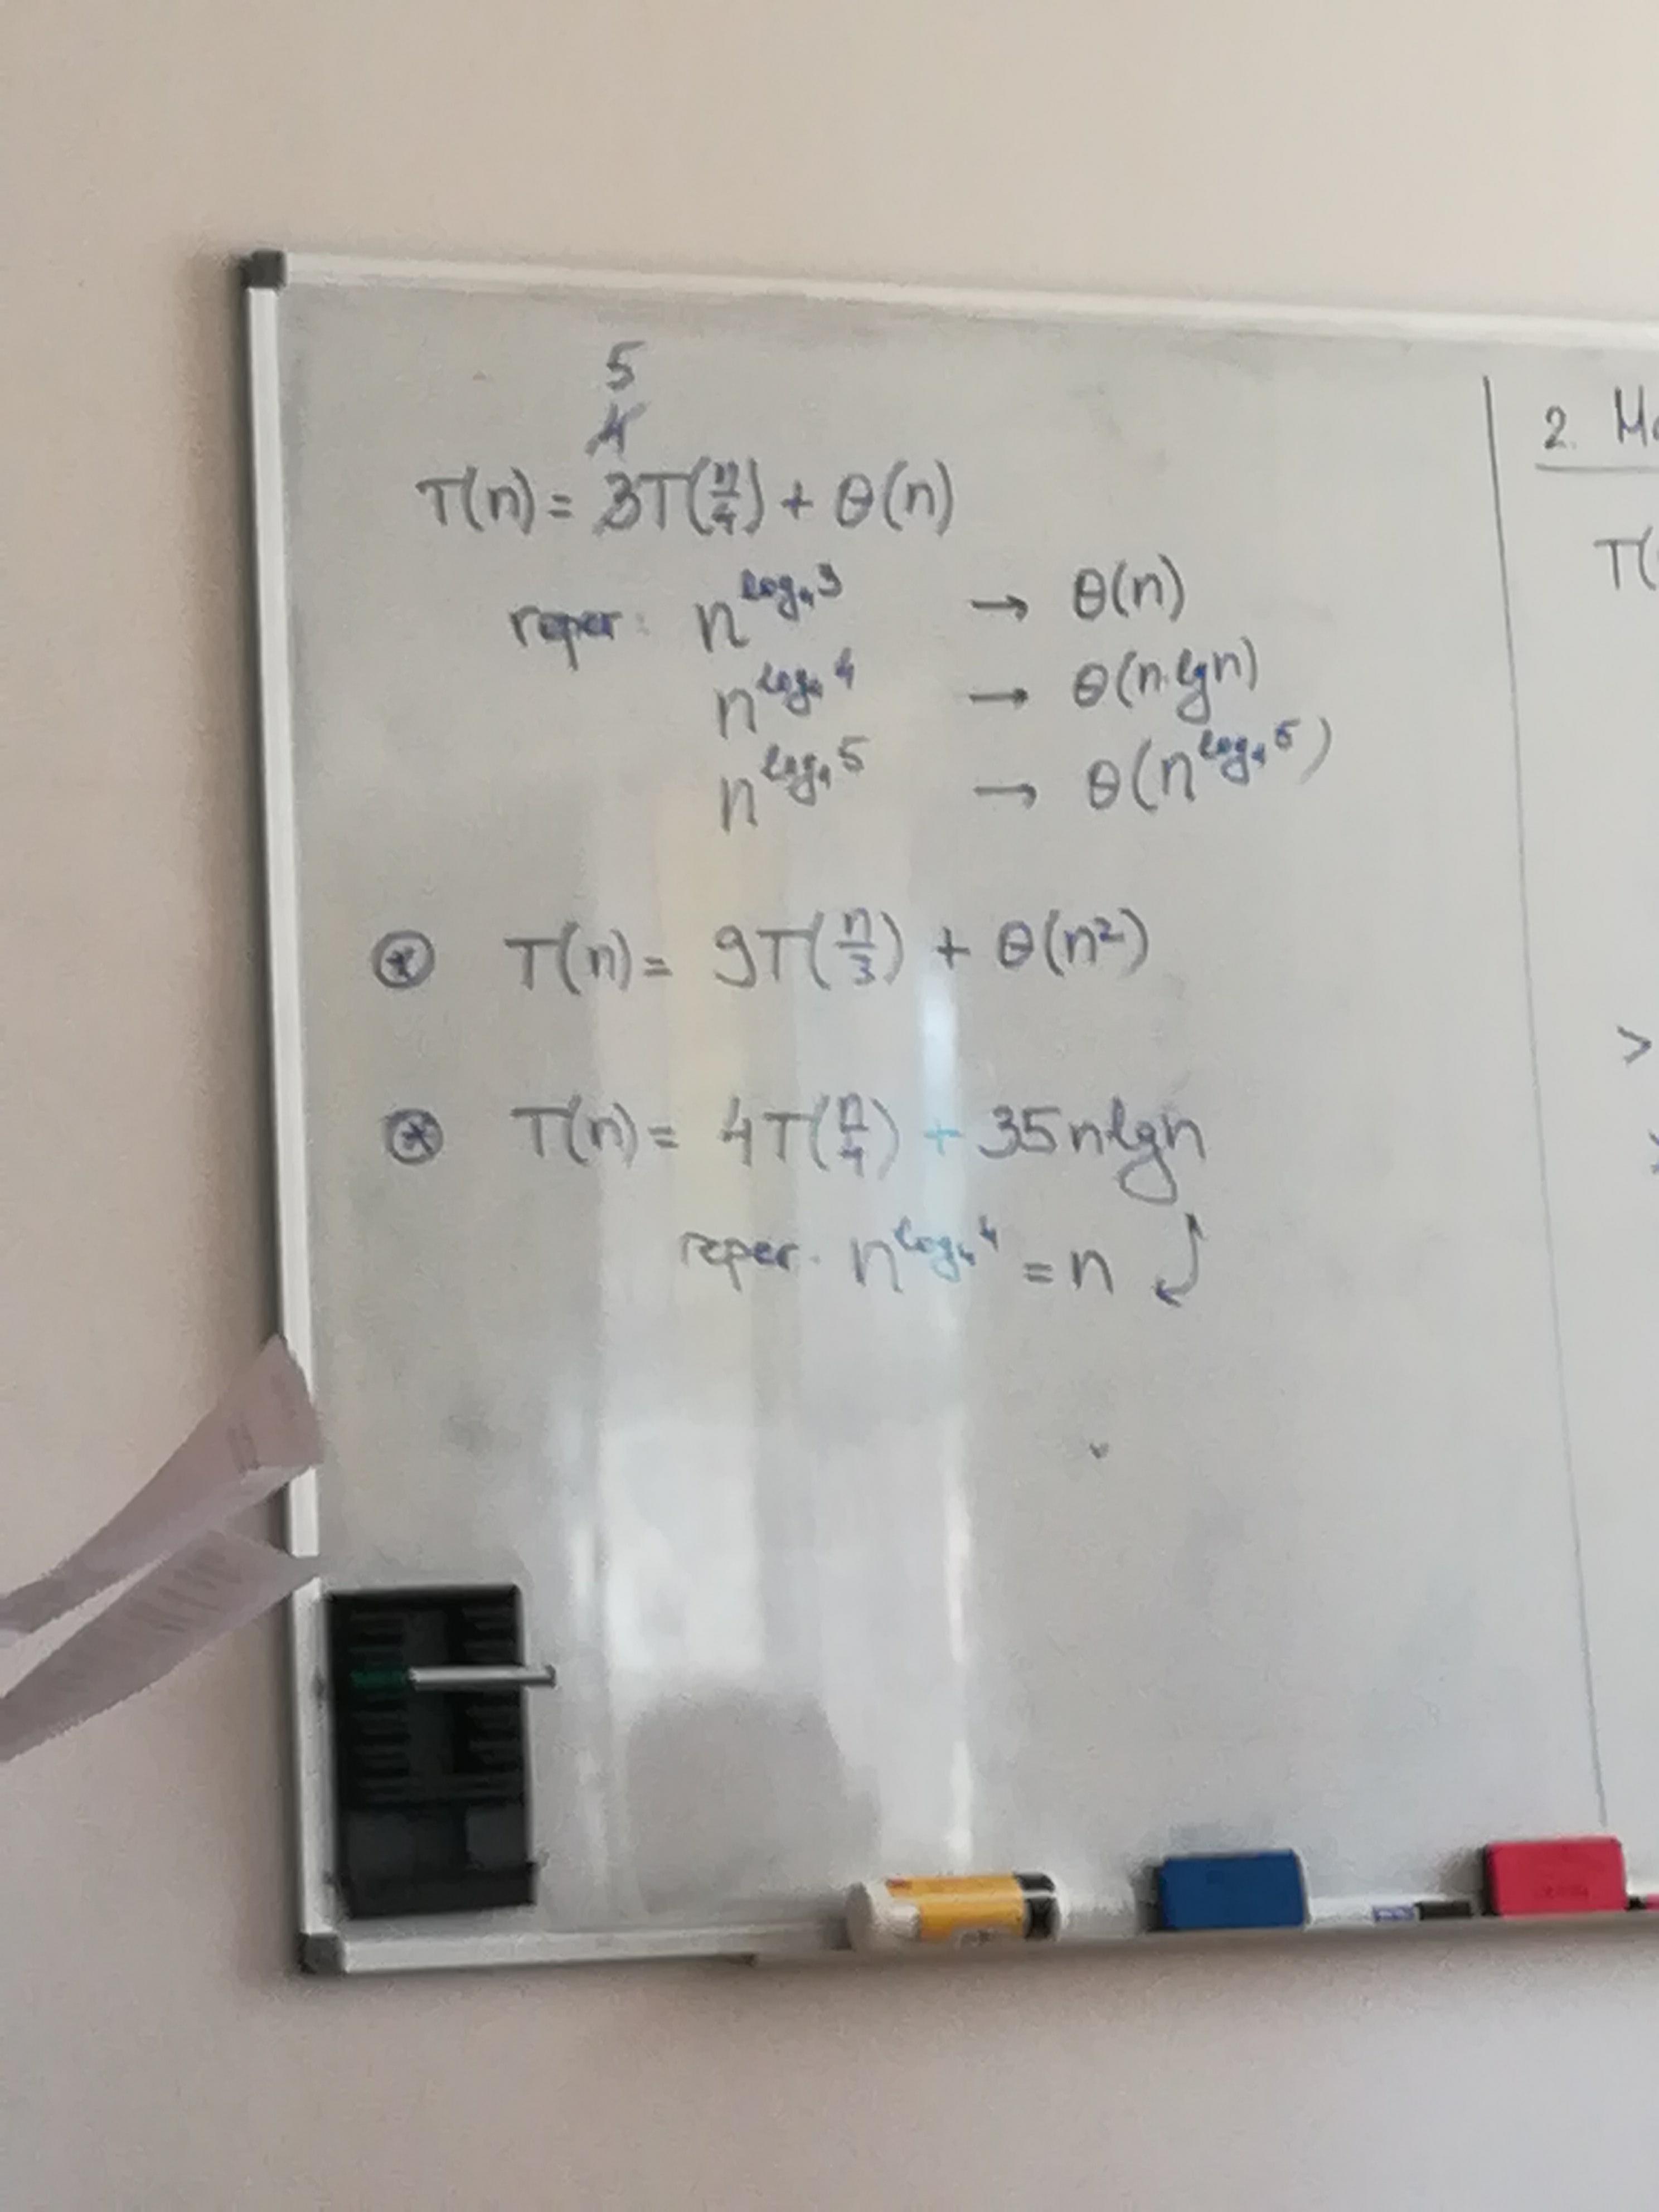 5
4
T(n) = 3T(n/4) + θ(n)
reper: n^log₄3 → θ(n)
n^log₄4 → θ(n·lgn)
n^log₄5 → θ(n^log₄5)
⊛ T(n) = 9T(n/3) + θ(n²)
⊛ T(n) = 4T(n/4) + 35nlgn
reper. n^log₄4 = n
2.
T(
>